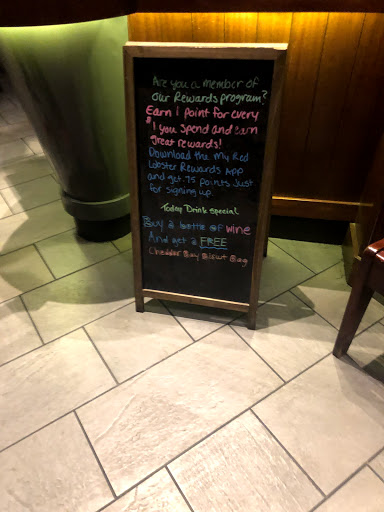 Are you a member of
our Rewards program?
Earn 1 point for every
$1 you spend and earn
great rewards!
Download the My Red
Lobster Rewards App
and get 75 points Just
for signing up.
Today Drink special
Buy a bottle of wine
And get a FREE
Cheddar Bay Biscuit Bag